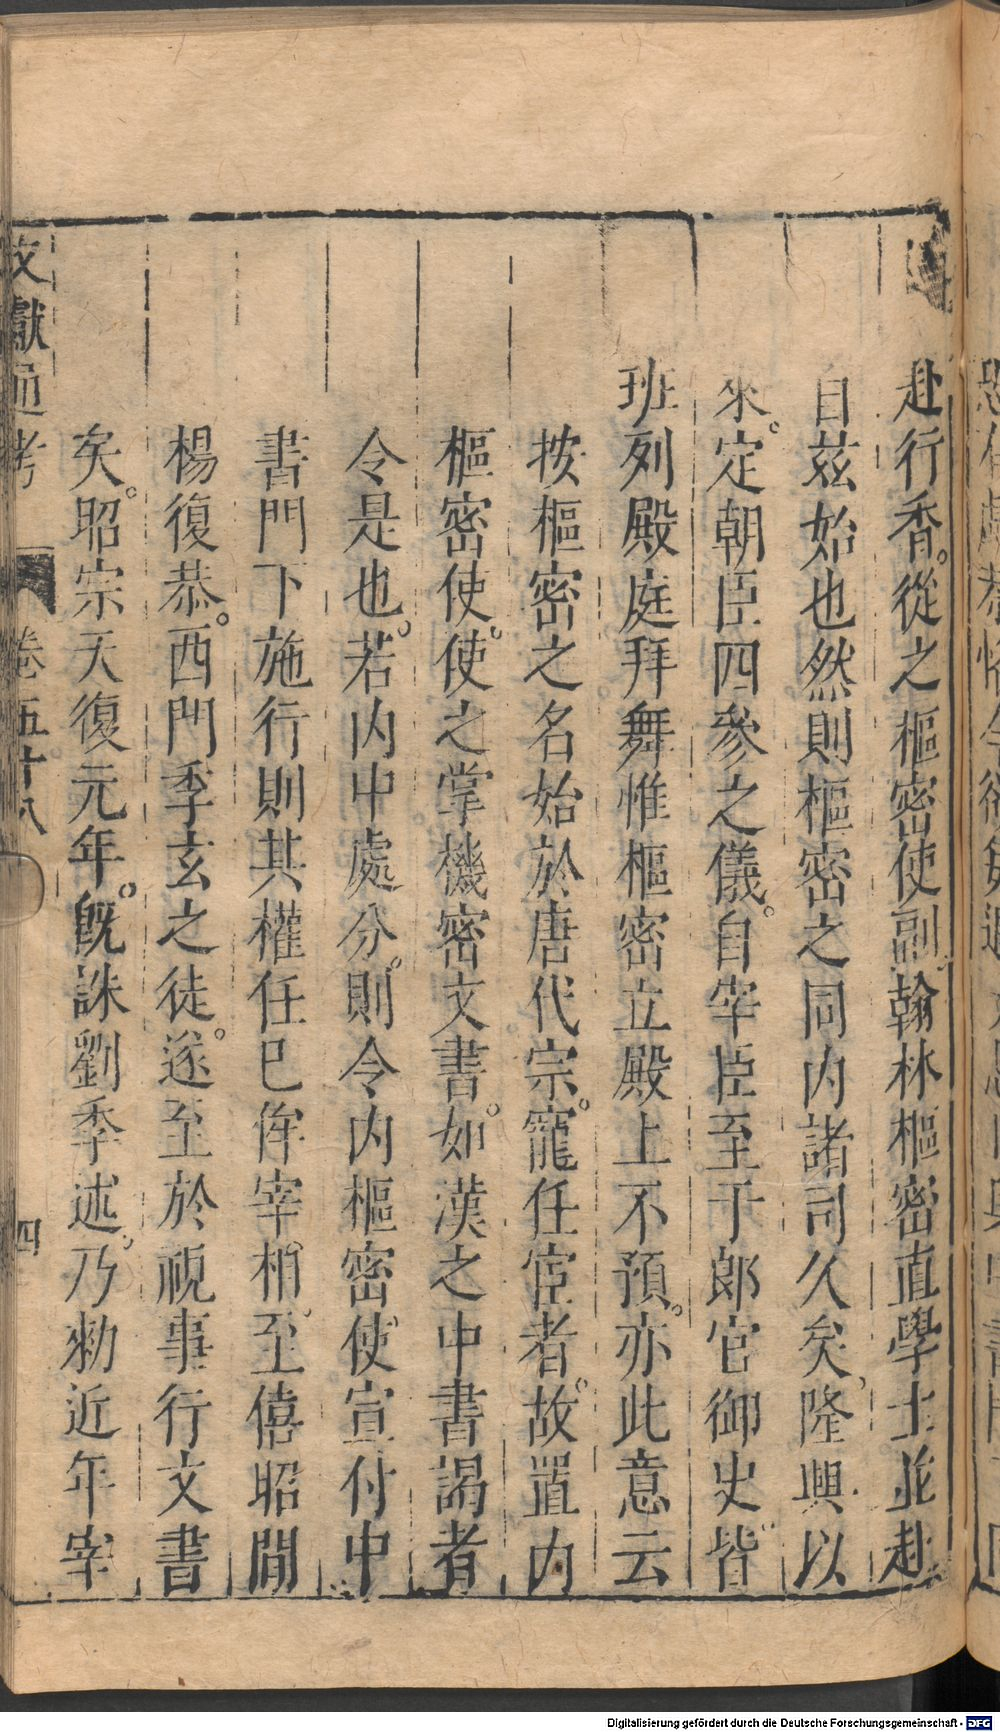 赴行香。從之樞密使副翰林樞密直學士並赴
自玆始也然則樞密之同内諸司久矣隆興以
來。定朝臣四參之儀。自宰臣至于郞官御史皆
班列殿庭拜舞惟樞密立殿上不預。亦此意云
按樞密之名始於唐代宗。寵任宦者。故置内
樞密使。使之掌機密文書。如漢之中書謁者
令是也。若内中處分。則令内樞密使宣付中
書門下施行則其權任巳侔宰相。至僖昭間
楊復恭。西門季玄之徒。遂至於視事行文書
矣。昭宗天復元年。旣誅劉季述。乃勑近年宰
文獻通考 卷五十八 四
Digitalisierung gefördert durch die Deutsche Forschungsgemeinschaft - DFG